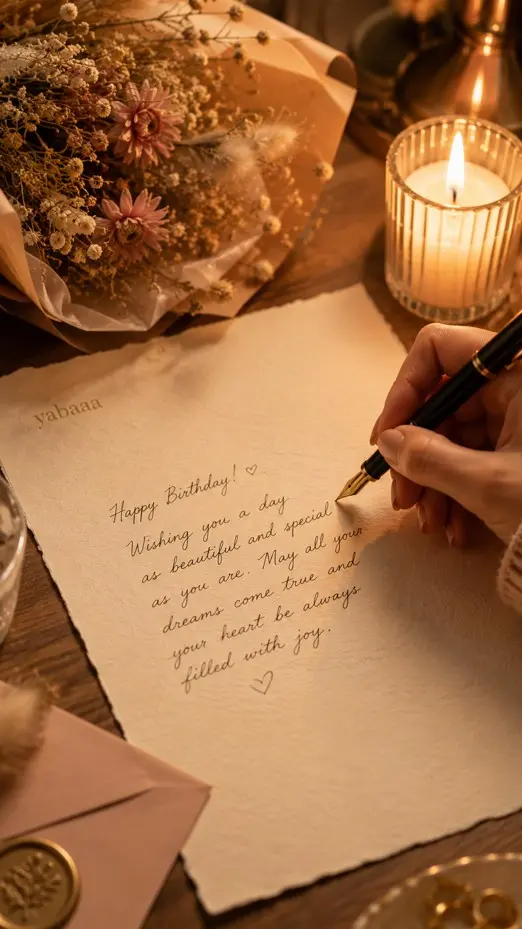 yabaaa
Happy Birthday! ♡
Wishing you a day
as beautiful and special
as you are. May all your
dreams come true and
your heart be always
filled with joy.
♡